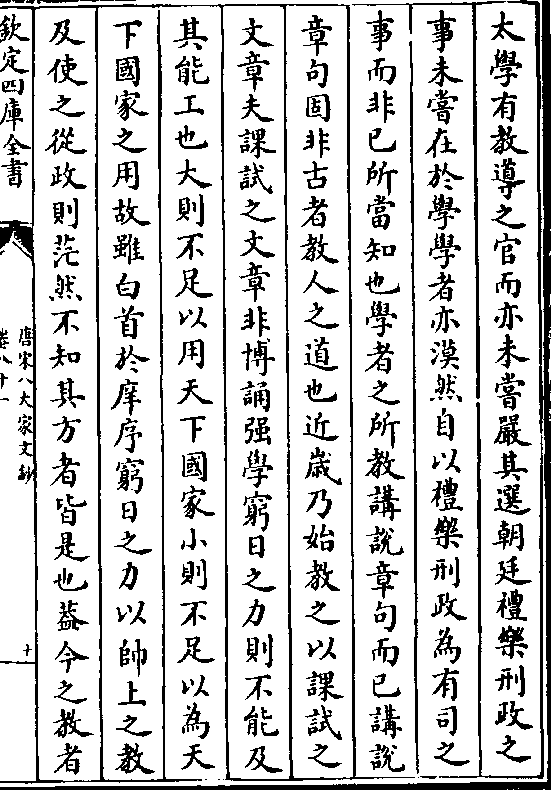 太學有教導之官而亦未嘗嚴其選朝廷禮樂刑政之
事未嘗在於學學者亦漠然自以禮樂刑政為有司之
事而非己所當知也學者之所教講說章句而已講說
章句固非古者教人之道也近歲乃始教之以課試之
文章夫課試之文章非博誦强學窮日之力則不能及
其能工也大則不足以用天下國家小則不足以為天
下國家之用故雖白首於庠序窮日之力以帥上之教
及使之從政則茫然不知其方者皆是也蓋今之教者
欽定四庫全書
唐宋八大家文鈔
卷八十一
十